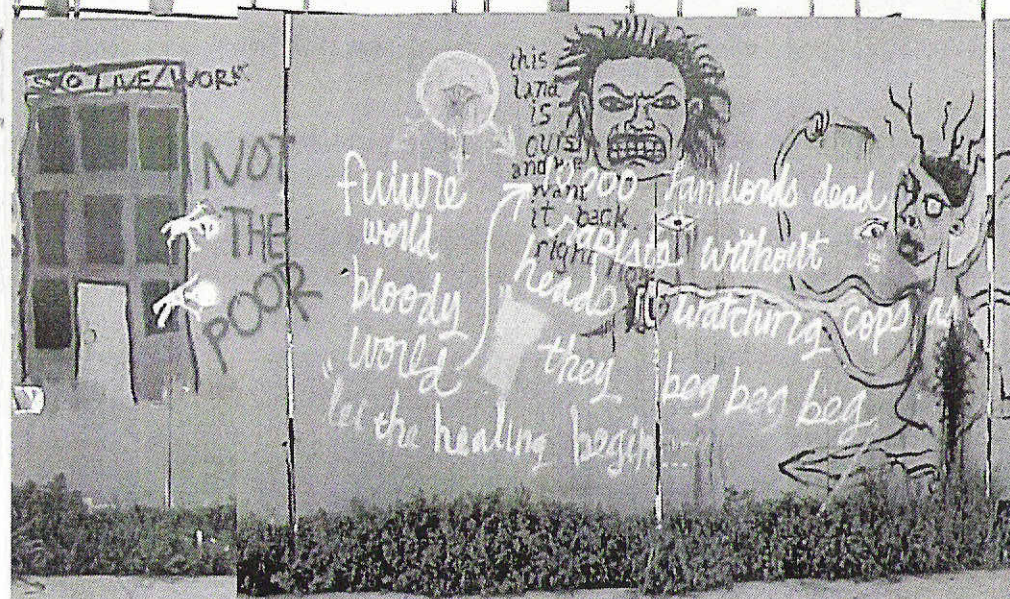 LIVE/WORK
NOT
THE
POOR
this
land
is
ours
and we
want
it back
right now
future
world
bloody
world
000 landlords dead
rapists without
heads watching cops as
they beg beg beg
"let the healing begin...